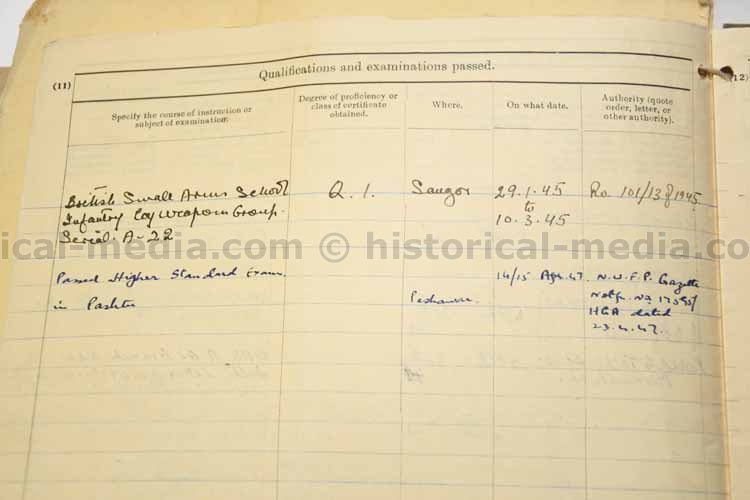 (11)
Qualifications and examinations passed.
(12)
Specify the course of instruction or
subject of examination.
Degree of proficiency or
class of certificate
obtained.
Where.
On what date.
Authority (quote
order, letter, or
other authority).
British Small Arms School
Infantry Coy Weapons Group.
Serial. A-22
Q. 1.
Saugor
29.1.45
to
10.3.45
Ro. 101/13 of 1945.
ical-media.com © historical-media.com
Passed Higher Standard Exam.
in Pashtu
Peshawar.
14/15 Apr. 47
N.W.F.P. Gazette
Notfn. No.
HGA dated
23.4.47.